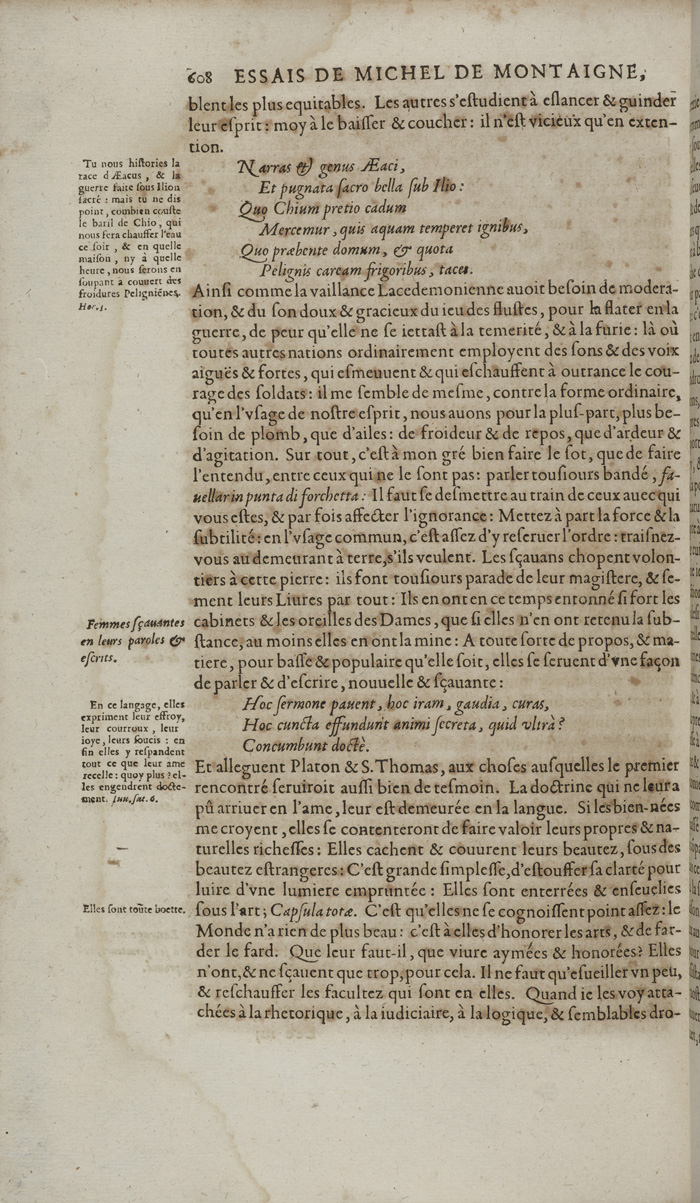 608 ESSAIS DE MICHEL DE MONTAIGNE,
blent les plus equitables. Les autres s'eſtudient à eſlancer & guinder
leur eſprit: moy à le baiſſer & coucher: il n'eſt vicieux qu'en exten-
tion.
Narras & genus Æaci,
Et pugnata ſacro bella ſub Ilio:
Quo Chium pretio cadum
Mercemur, quis aquam temperet ignibus,
Quo præbente domum, & quota
Pelignis caream frigoribus, taces.
Tu nous hiſtories la
race d'Æacus, & la
guerre faite ſous Ilion
ſacré: mais tu ne dis
point, combien couſte
le baril de Chio, qui
nous fera chauffer l'eau
ce ſoir, & en quelle
maiſon, ny à quelle
heure, nous ſerons en
ſoupant à couuert des
froidures Peligniénes.
Hor. 3.
Ainſi comme la vaillance Lacedemonienne auoit beſoin de modera-
tion, & du ſon doux & gracieux du ieu des fluſtes, pour la flater en la
guerre, de peur qu'elle ne ſe iettaſt à la temerité, & à la furie: là où
toutes autres nations ordinairement employent des ſons & des voix
aiguës & fortes, qui eſmeuuent & qui eſchauffent à outrance le cou-
rage des ſoldats: il me ſemble de meſme, contre la forme ordinaire,
qu'en l'vſage de noſtre eſprit, nous auons pour la pluſ-part, plus be-
ſoin de plomb, que d'ailes: de froideur & de repos, que d'ardeur &
d'agitation. Sur tout, c'eſt à mon gré bien faire le ſot, que de faire
l'entendu, entre ceux qui ne le ſont pas: parler touſiours bandé, fa-
uellar in punta di forchetta: Il faut ſe deſmettre au train de ceux auec qui
vous eſtes, & par fois affecter l'ignorance: Mettez à part la force & la
ſubtilité: en l'vſage commun, c'eſt aſſez d'y reſeruer l'ordre: traiſnez-
vous au demeurant à terre, s'ils veulent. Les ſçauans chopent volon-
tiers à cette pierre: ils font touſiours parade de leur magiſtere, & ſe-
ment leurs Liures par tout: Ils en ont en ce temps entonné ſi fort les
cabinets & les oreilles des Dames, que ſi elles n'en ont retenu la ſub-
ſtance, au moins elles en ont la mine: A toute ſorte de propos, & ma-
tiere, pour baſſe & populaire qu'elle ſoit, elles ſe ſeruent d'vne façon
de parler & d'eſcrire, nouuelle & ſçauante:
Femmes ſçauantes
en leurs paroles &
eſcrits.
Hoc ſermone pauent, hoc iram, gaudia, curas,
Hoc cuncta effundunt animi ſecreta, quid vltrà?
Concumbunt doctè.
En ce langage, elles
expriment leur effroy,
leur courroux, leur
ioye, leurs ſoucis: en
fin elles y reſpandent
tout ce que leur ame
recelle: quoy plus? el-
les engendrent docte-
ment. Iuu. ſat. 6.
Et alleguent Platon & S. Thomas, aux choſes auſquelles le premier
rencontré ſeruiroit auſſi bien de teſmoin. La doctrine qui ne leur a
pû arriuer en l'ame, leur eſt demeurée en la langue. Si les bien-nées
me croyent, elles ſe contenteront de faire valoir leurs propres & na-
turelles richeſſes: Elles cachent & couurent leurs beautez, ſous des
beautez eſtrangeres: C'eſt grande ſimpleſſe, d'eſtouffer ſa clarté pour
luire d'vne lumiere empruntée: Elles ſont enterrées & enſeuelies
ſous l'art; Capſula totæ. C'eſt qu'elles ne ſe cognoiſſent point aſſez: le
Elles ſont toute boette.
Monde n'a rien de plus beau: c'eſt à elles d'honorer les arts, & de far-
der le fard. Que leur faut-il, que viure aymées & honorées? Elles
n'ont, & ne ſçauent que trop, pour cela. Il ne faut qu'eſueiller vn peu,
& reſchauffer les facultez qui ſont en elles. Quand ie les voy atta-
chées à la rhetorique, à la iudiciaire, à la logique, & ſemblables dro-